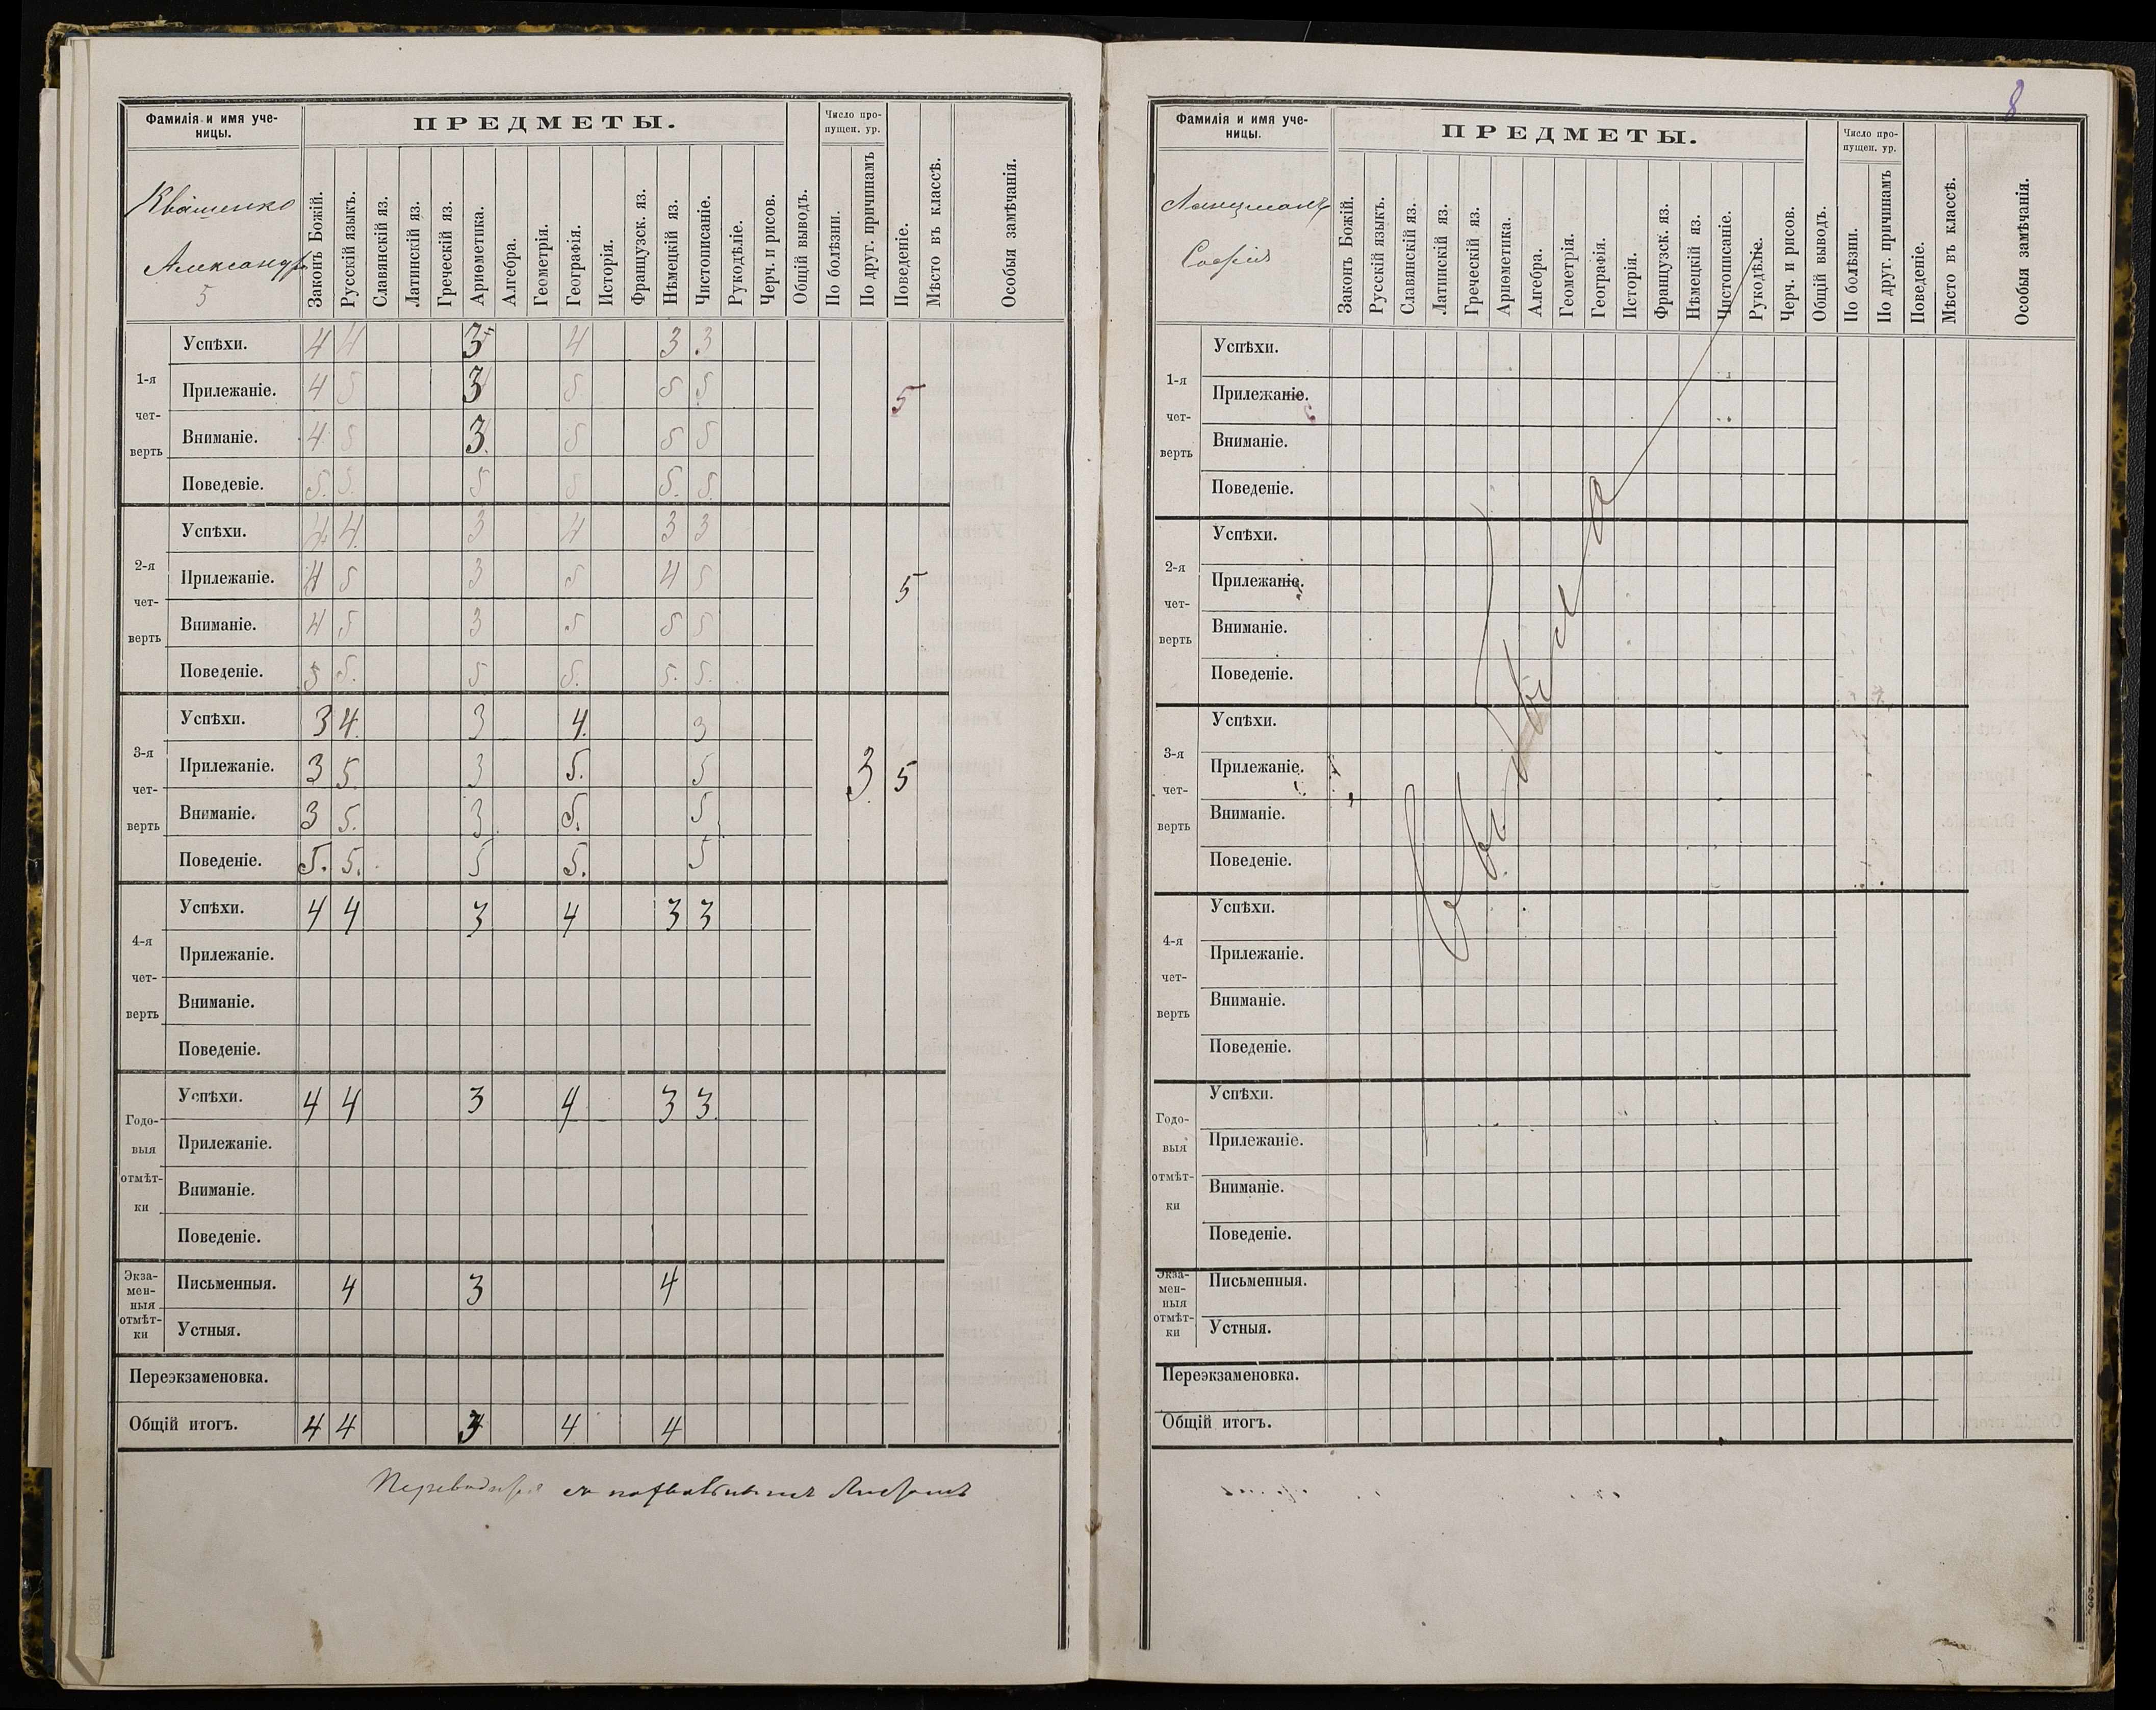 Фамилія и имя уче-
ницы.
ПРЕДМЕТЫ.
Число про-
пущен. ур.
Квашенко
Александр
5
Законъ Божій.
Русскій языкъ.
Славянскій яз.
Латинскій яз.
Греческій яз.
Ариѳметика.
Алгебра.
Геометрія.
Географія.
Исторія.
Французск. яз.
Нѣмецкій яз.
Чистописаніе.
Рукодѣліе.
Черч. и рисов.
Общій выводъ.
По болѣзни.
По друг. причинамъ
Поведеніе.
Мѣсто въ классѣ.
Особыя замѣчанія.
1-я
чет-
верть
Успѣхи. 4 4 3 4 3 3
Прилежаніе. 4 5 3 5 5 5 5
Вниманіе. 4 5 3 5 5 5
Поведевіе. 5. 5. 5 5 5. 5.
2-я
чет-
верть
Успѣхи. 4 4. 3 4 3 3
Прилежаніе. 4 5 3 5 4 5 5
Вниманіе. 4 5 3 5 5 5
Поведеніе. 5 5. 5 5. 5. 5.
3-я
чет-
верть
Успѣхи. 3 4. 3 4. 3
Прилежаніе. 3 5. 3 5. 5 3 5
Вниманіе. 3 5. 3 5. 5
Поведеніе. 5. 5. 5 5. 5
4-я
чет-
верть
Успѣхи. 4 4 3 4 3 3
Прилежаніе.
Вниманіе.
Поведеніе.
Годо-
выя
отмѣт-
ки
Успѣхи. 4 4 3 4 3 3.
Прилежаніе.
Вниманіе.
Поведеніе.
Экза-
мен-
ныя
отмѣт-
ки
Письменныя. 4 3 4
Устныя.
Переэкзаменовка.
Общій итогъ. 4 4 3 4 4
Переводится съ похвальнымъ листомъ
8
Фамилія и имя уче-
ницы.
ПРЕДМЕТЫ.
Число про-
пущен. ур.
Ланцманъ
Софія
Законъ Божій.
Русскій языкъ.
Славянскій яз.
Латинскій яз.
Греческій яз.
Ариѳметика.
Алгебра.
Геометрія.
Географія.
Исторія.
Французск. яз.
Нѣмецкій яз.
Чистописаніе.
Рукодѣліе.
Черч. и рисов.
Общій выводъ.
По болѣзни.
По друг. причинамъ
Поведеніе.
Мѣсто въ классѣ.
Особыя замѣчанія.
1-я
чет-
верть
Успѣхи.
Прилежаніе.
Вниманіе.
Поведеніе.
2-я
чет-
верть
Успѣхи.
Прилежаніе.
Вниманіе.
Поведеніе.
3-я
чет-
верть
Успѣхи.
Прилежаніе.
Вниманіе.
Поведеніе.
4-я
чет-
верть
Успѣхи.
Прилежаніе.
Вниманіе.
Поведеніе.
Годо-
выя
отмѣт-
ки
Успѣхи.
Прилежаніе.
Вниманіе.
Поведеніе.
Экза-
мен-
ныя
отмѣт-
ки
Письменныя.
Устныя.
Переэкзаменовка.
Общій итогъ.